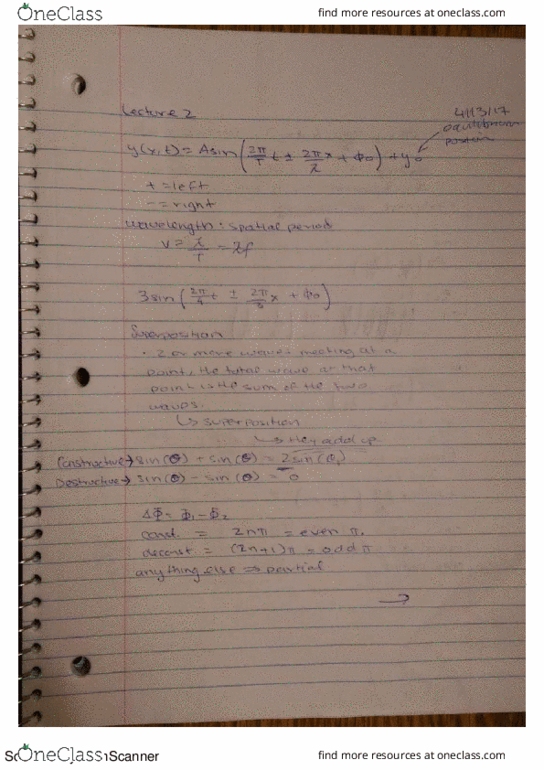 OneClass find more resources at oneclass.com
Lecture 2
4/13/17
equilibrium
position
y(x,t) = A sin(2π/T t ± 2π/λ x + Φ0) + y0
+ = left
- = right
wavelength: spatial period
v = λ/T = λf
3 sin(2π/4 t ± 2π/3 x + Φ0)
Superposition
· 2 or more waves meeting at a
point, the total wave at that
point is the sum of the two
waves.
↳ superposition
↳ they add up
Constructive → sin(θ) + sin(θ) = 2sin(θ)
Destructive → sin(θ) - sin(θ) = 0
ΔΦ = Φ1 - Φ2
const. = 2nπ = even π.
deconst = (2n+1)π = odd π
anything else ⇒ partial
→
OneClass Scanner find more resources at oneclass.com